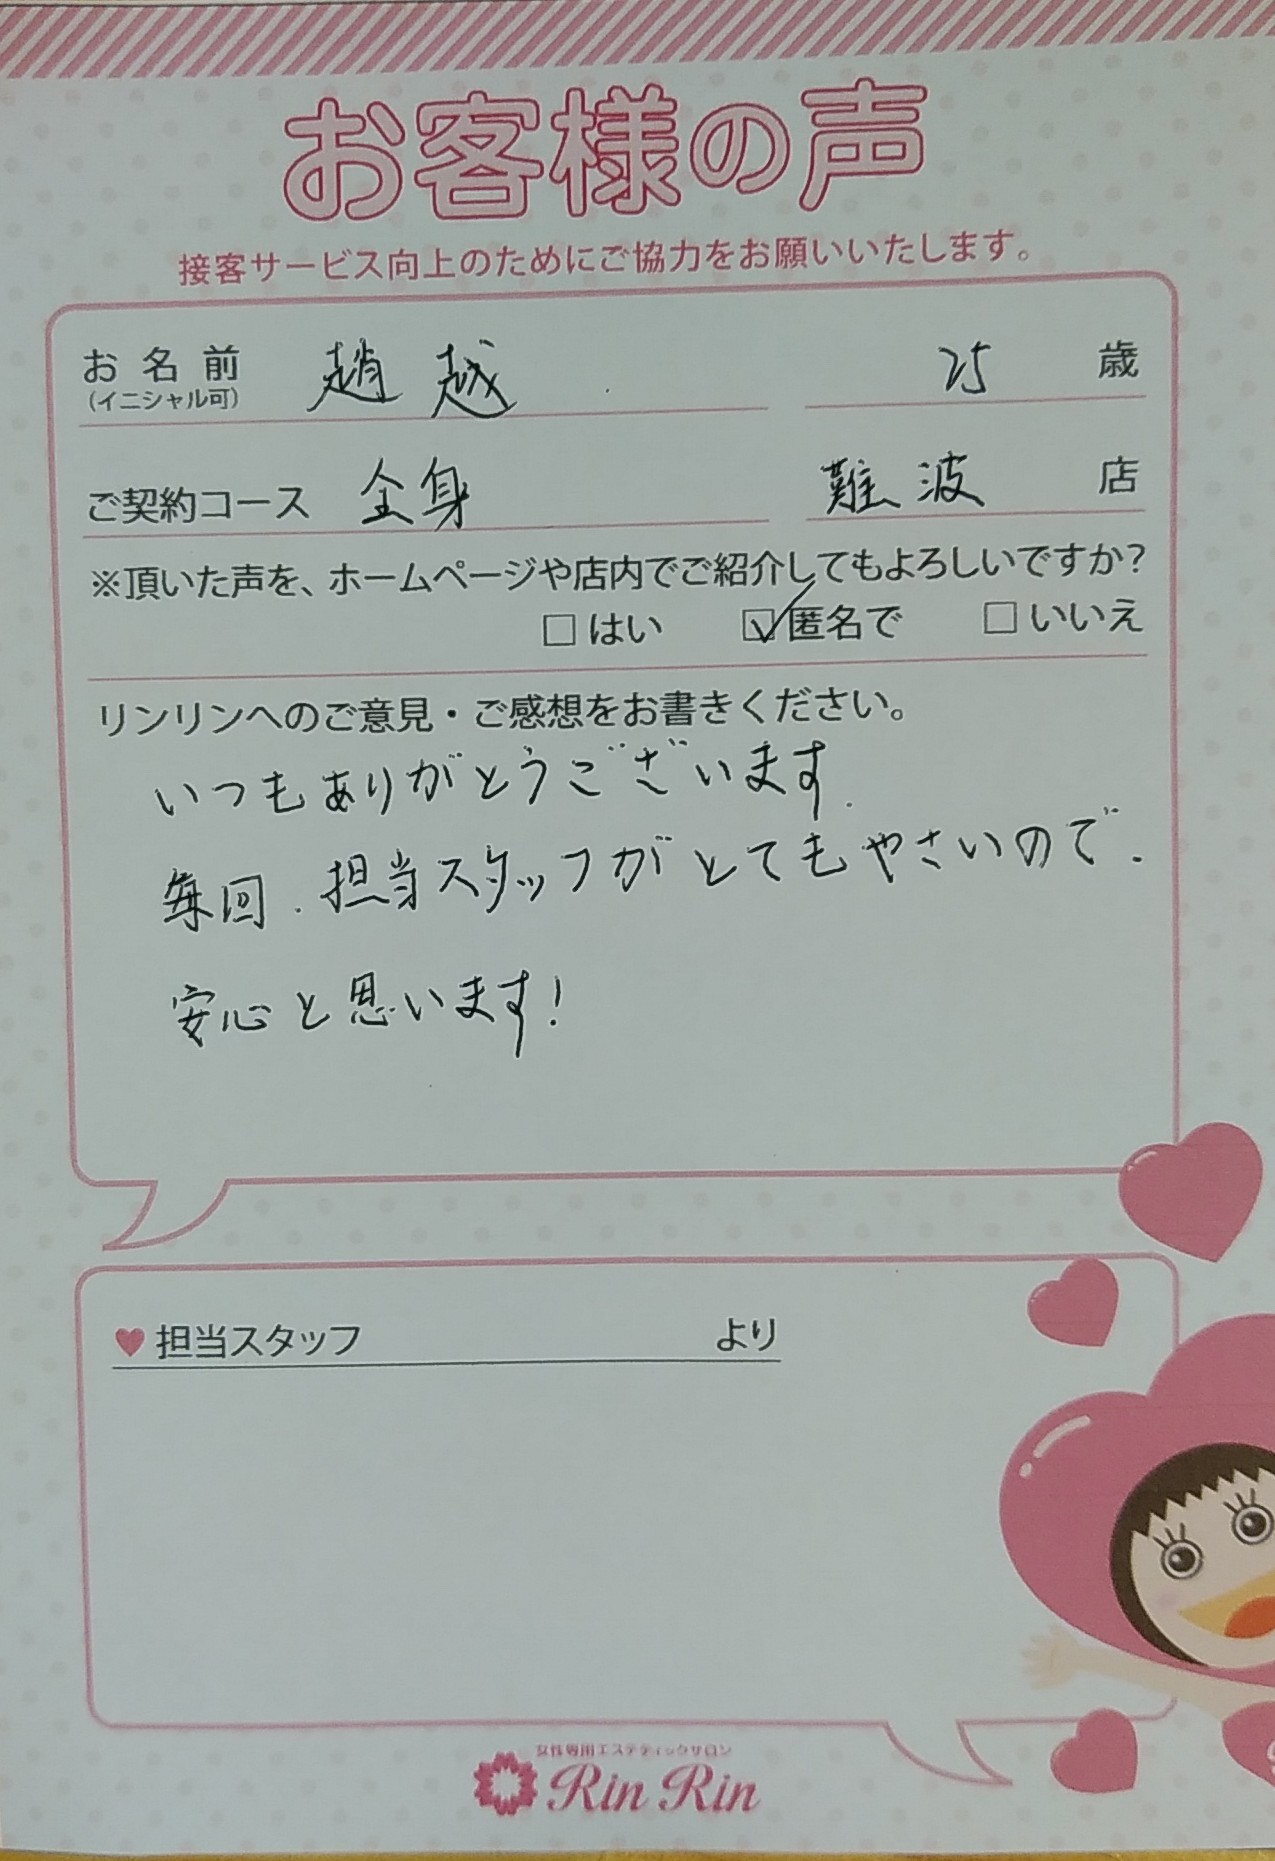 お客様の声
接客サービス向上のためにご協力をお願いいたします。
お名前 趙越 25 歳
(イニシャル可)
ご契約コース 全身 難波 店
※頂いた声を、ホームページや店内でご紹介してもよろしいですか?
□はい ☑匿名で □いいえ
リンリンへのご意見・ご感想をお書きください。
いつもありがとうございます.
毎回.担当スタッフがとてもやさいので.
安心と思います!
♥担当スタッフ より
女性専用エステティックサロン
Rin Rin